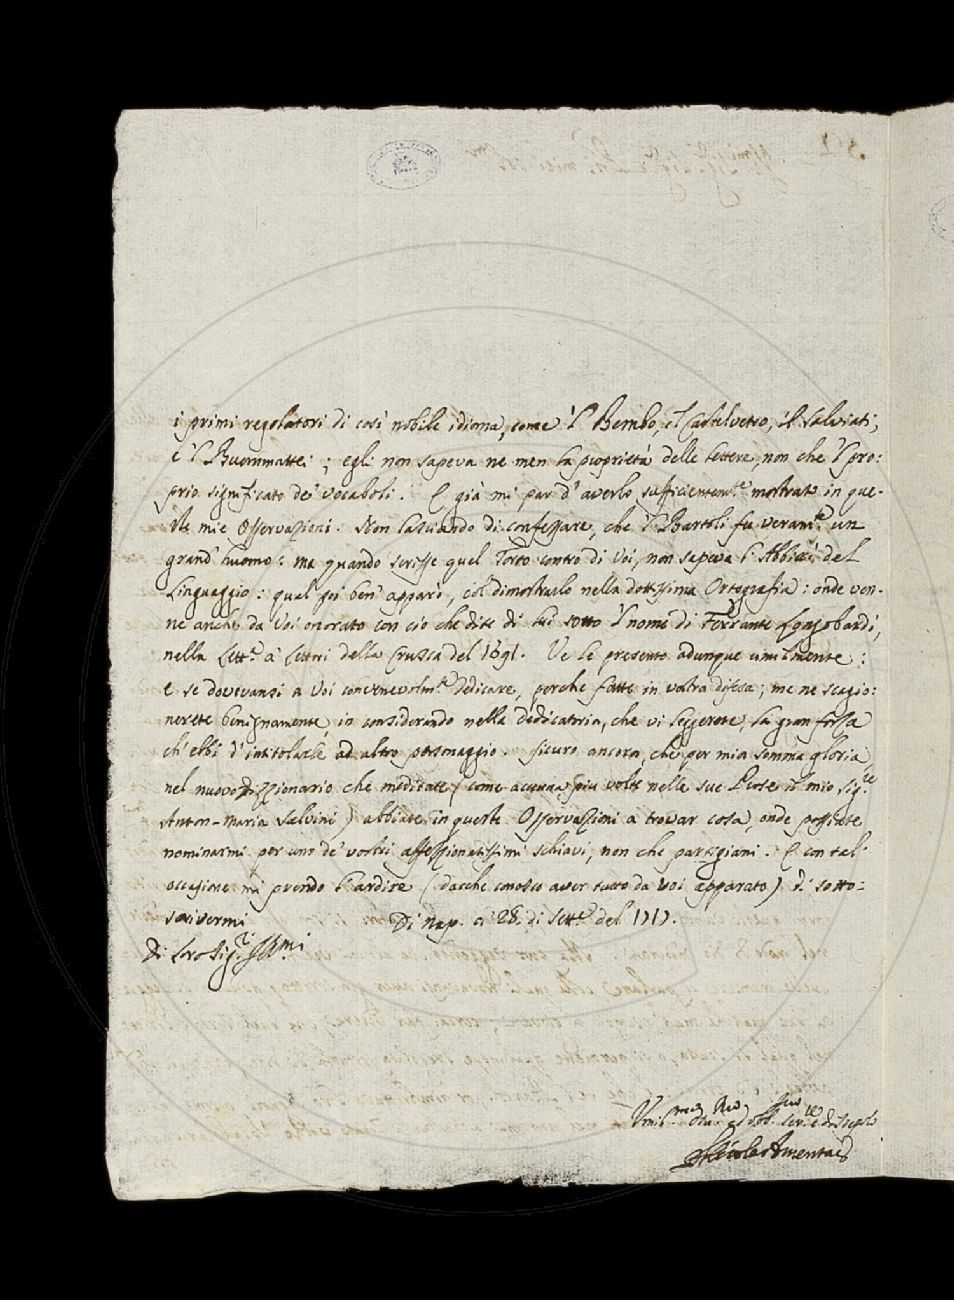 i primi regolatori di così nobile idioma, come 'l Bembo, 'l Castelvetro, il Salviati,
e 'l Buommattei; egli non sapeva ne men la proprietà delle lettere, non che 'l pro:
prio significato de' vocaboli. E già mi par d' averlo sufficientem.te mostrato in que-
ste mie Osservazioni. Non lasciando di confessare, che 'l Bartoli fu veram.te un
grand' huomo: ma quando scrisse quel Torto contro di Voi, non sapeva l' Abbicì del
Linguaggio: qual poi ben' apparò, col dimostrarlo nella dottissima Ortografia: onde ven-
ne anche da Voi onorato con ciò che dite di lui sotto 'l nome di Ferrante Longobardi,
nella Lett.a a' Lettori della Crusca del 1691. Ve le presento adunque umilmente:
e se dovevansi a Voi convenevolm.te dedicare, perche fatte in vostra difesa; me ne scagio:
nerete benignamente in considerando nella dedicatoria, che vi leggerete, la gran forza
ch' ebbi d' intitolarle ad altro personaggio. sicuro ancora, che per mia somma gloria
nel nuovo Dizzionario che meditate (come accenna più volte nelle sue Prose il mio Sig.re
Anton-Maria Salvini) abbiate in queste Osservazioni a trovar cosa, onde possiate
nominarmi per uno de' vostri affezzionatissimi schiavi, non che partigiani. E con tal'
occasione mi prendo l' ardire (dacche conosco aver tutto da voi apparato) di sotto-
scrivermi Di Nap. ai 28. di Sett.e del 1717.
Di loro Sig.ri Ill.mi
Umil.mo Dev.mo ed obb. ser.re e discep.lo
Niccolò Amenta